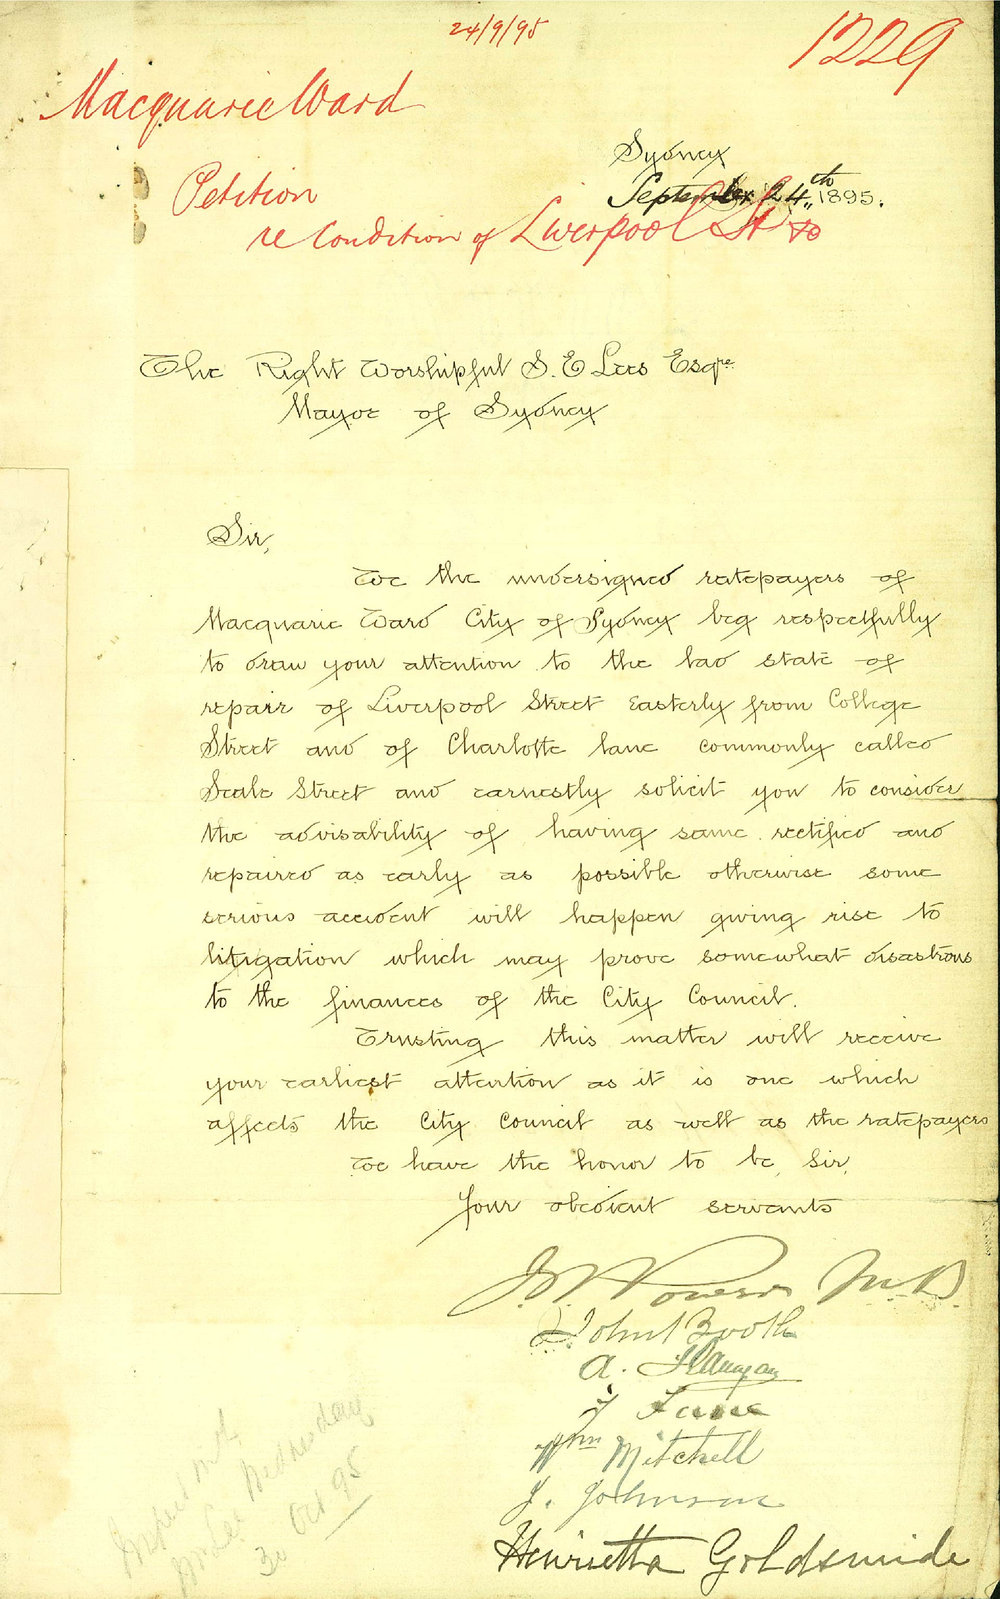 24/9/95
1229
Macquarie Ward
Sydney
September 24th 1895.
Petition
re Condition of Liverpool St &c
The Right Worshipful S. E Lees Esqre
Mayor of Sydney
Sir,
We the undersigned ratepayers of
Macquarie Ward City of Sydney beg respectfully
to draw your attention to the bad state of
repair of Liverpool Street Easterly from College
Street and of Charlotte lane commonly called
Seale Street and earnestly solicit you to consider
the advisability of having same rectified and
repaired as early as possible otherwise some
serious accident will happen giving rise to
litigation which may prove somewhat disastrous
to the finances of the City Council.
Trusting this matter will receive
your earliest attention as it is one which
affects the City Council as well as the ratepayers
We have the honor to be, Sir,
Your obedient servants
Power M.B.
John Booth
A. Flanagan
J Fane
Wm Mitchell
J. Johnson
Henrietta Goldsmide
Wednesday
30 Oct 95